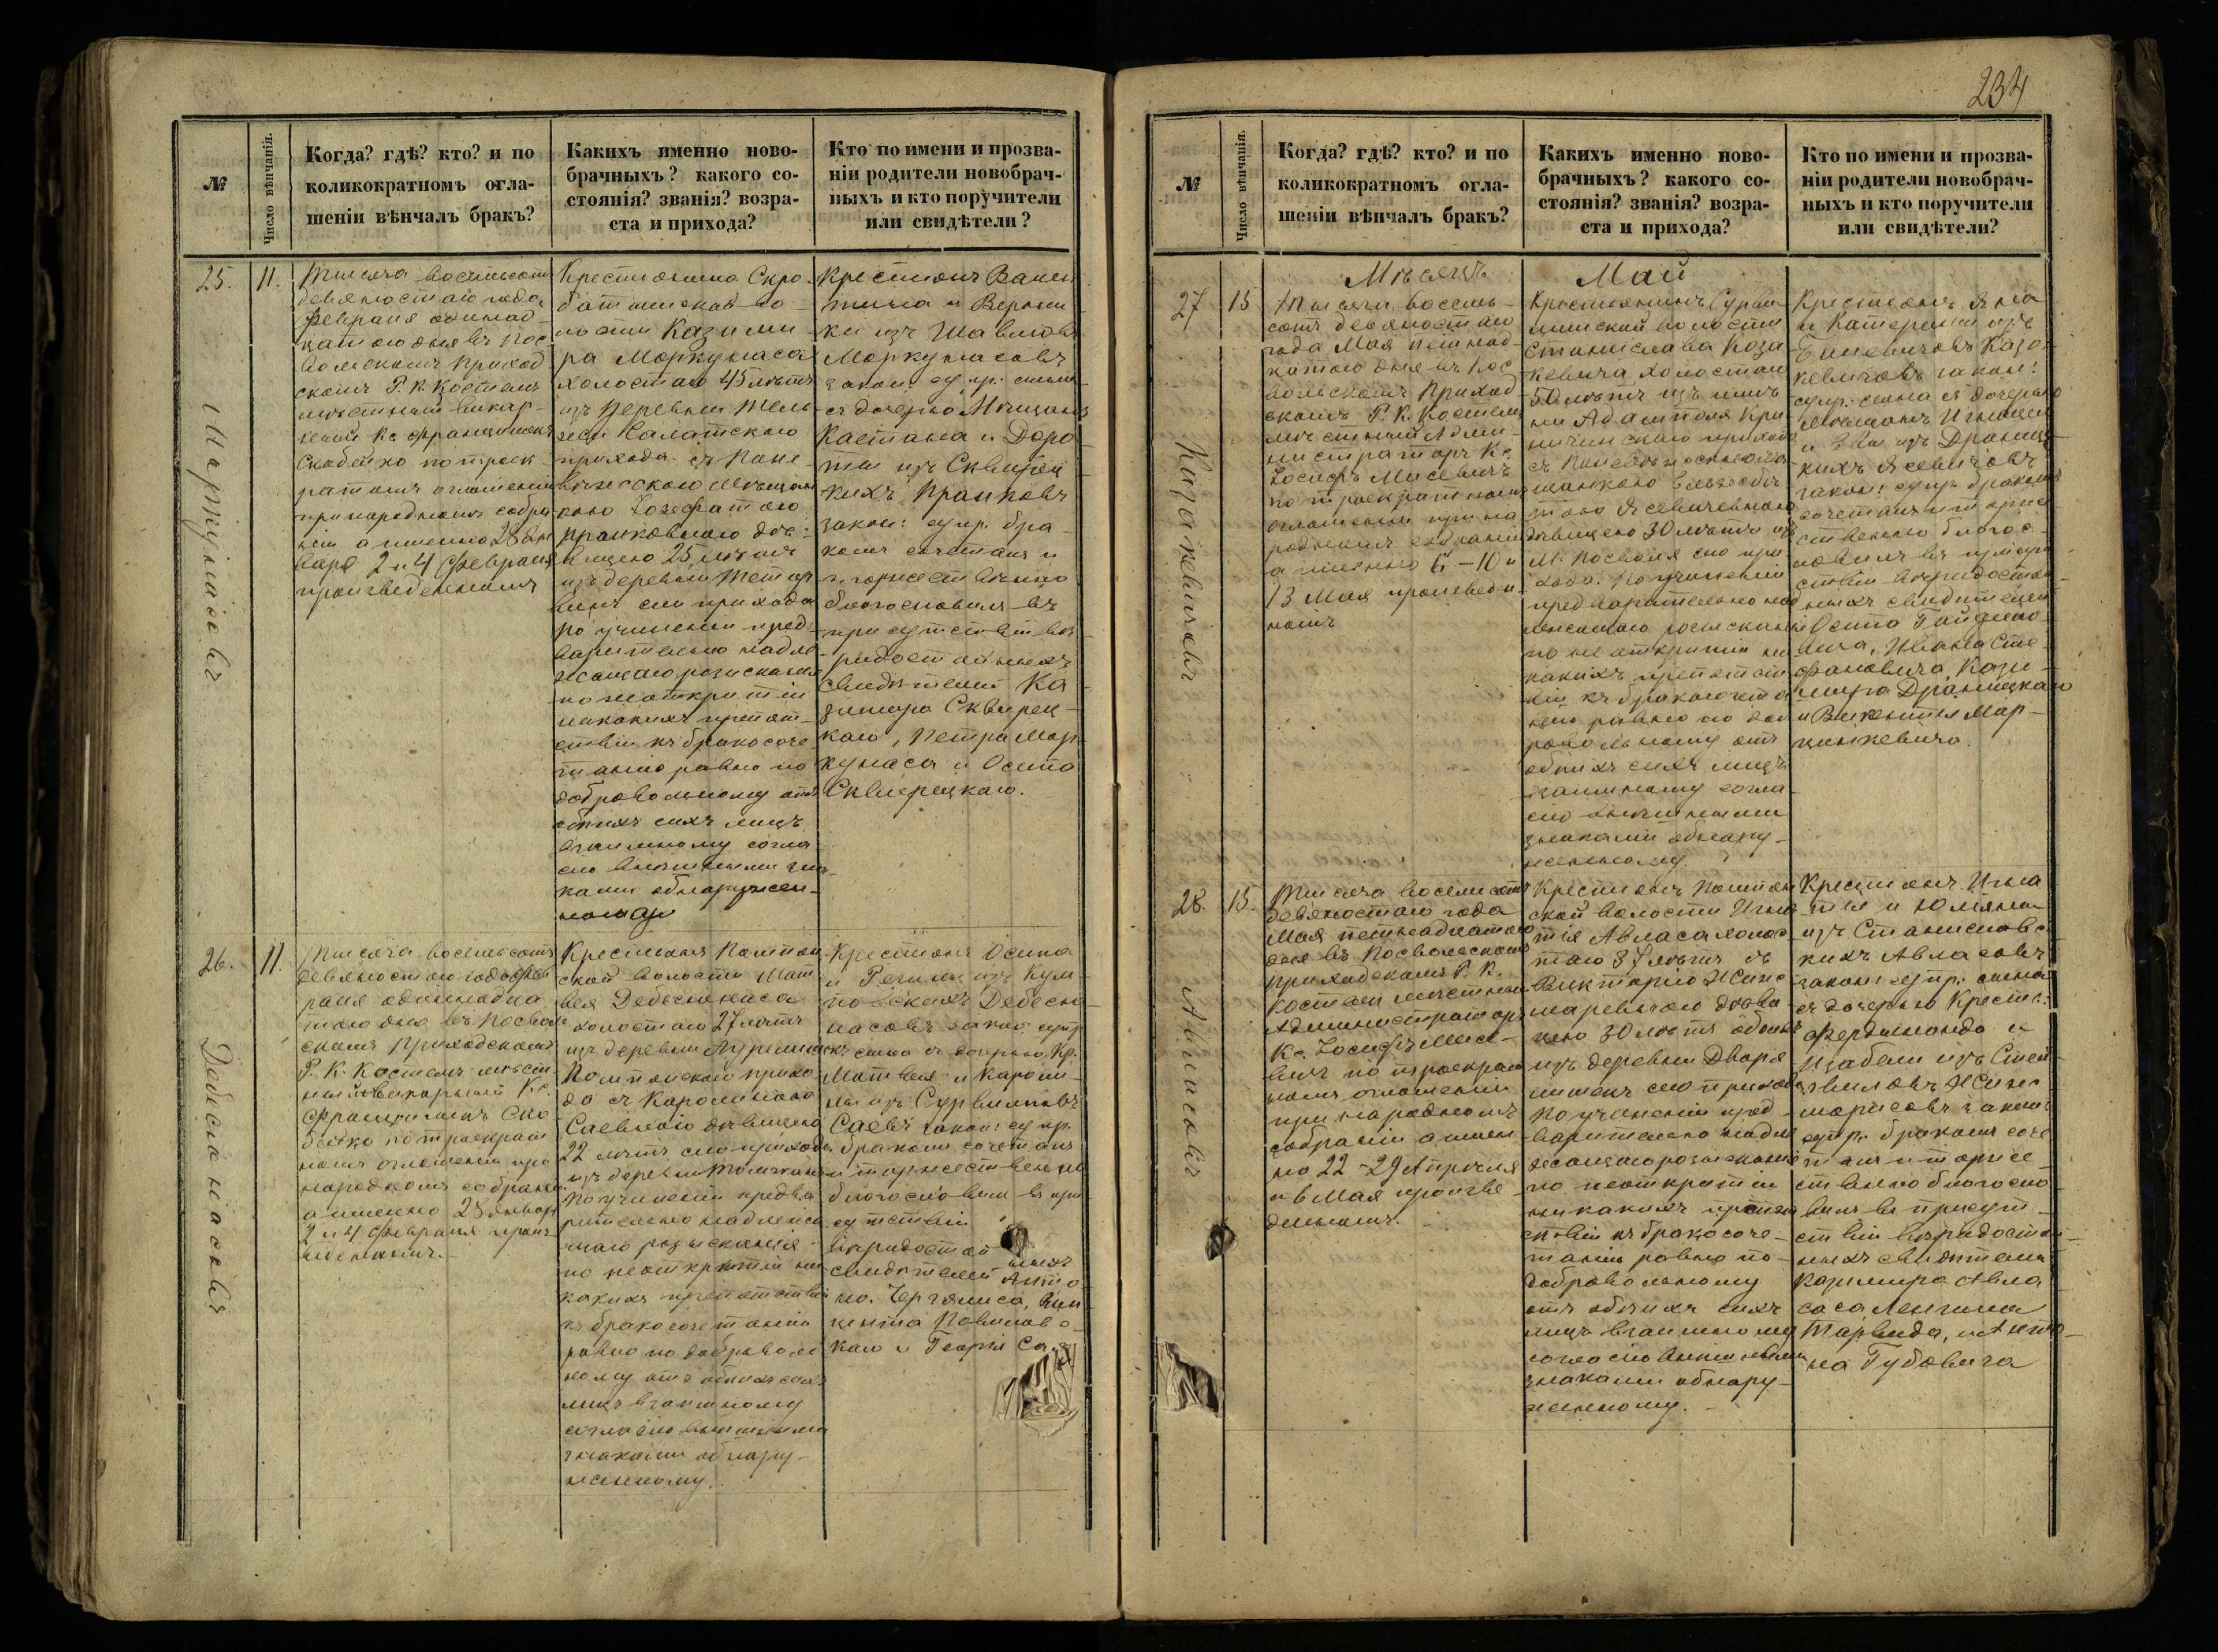 234
№
Число вѣнчанія.
Когда? гдѣ? кто? и по
коликократномъ огла-
шеніи вѣнчалъ бракъ?
Какихъ именно ново-
брачныхъ? какого со-
стоянія? званія? возра-
ста и прихода?
Кто по имени и прозва-
ніи родители новобрач-
ныхъ и кто поручители
или свидѣтели?
25.
11.
Тысяча восемьсотъ
девяностаго года
Февраля одинад-
цатаго дня въ Пос-
вольскомъ Приход
скомъ Р. К. Костелѣ
мѣстный викар-
ный Кс Францишекъ
Скабейко по троек-
ратномъ оглашеніи
при народномъ собра
ніи а именно 28 Ян
варя 2 и 4 Февраля
произведенномъ
Крестьянина Скро-
ботишской во-
лости Казими-
ра Моркунаса
холостаго 45 лѣтъ
изъ деревни
прихода съ Поне-
вѣжскою мѣщан
кою Іозефатою
Пранковною дѣ-
вицею 25 лѣтъ
изъ деревни
сего прихода
по учиненіи пред
варительно надле
жащаго розысканія
по неоткрытіи
никакихъ препят-
ствій къ бракосоче
танію равно по
добровольному отъ
обоихъ сихъ лицъ
взаимному согла
сію внѣшними зна-
ками обнаружен-
ному
Крестьянъ Вален
тина и Верони
ки изъ
Моркунасовъ
закон: супр: сына
съ дочерью Мѣщанъ
Каетана и Доро
ты изъ Сквирец
кихъ Пранковъ
закон: супр. бра-
комъ сочеталъ и
торжественно
благословилъ въ
присутствіи вѣ-
ридостойныхъ
свидѣтелей Ка
зимира Сквирец-
каго, Петра Мор
кунаса и Осипа
Сквирецкаго.
26.
11.
Тысяча восемьсотъ
девяностаго года Фев
раля одинадца
таго дня въ Посволь
скомъ Приходскомъ
Р. К. Костелѣ мѣст
ный викарный Кс.
Францишекъ Ска
бейко по троекрат
номъ оглашеніи при
народномъ собраніи
а именно 28 Января
2 и 4 Февраля произ
веденномъ.
Крестьянъ Помпян
ской волости Мат
вея Дебеснюнаса
холостаго 27 лѣтъ
изъ деревни
Помпянскаго прихо
да съ Каролиною
Саевною дѣвицею
22 лѣтъ сего прихода
изъ деревни
По учиненіи предва
рительно надлежа
щаго розысканія
по неоткрытіи ни
какихъ препятствій
къ бракосочетанію
равно по добровол
ному отъ обоихъ сихъ
лицъ взаимному
согласію внѣшними
знаками обнару-
женному.
Крестьянъ Осипа
и изъ
Дебесню
насовъ закон: супр
сына съ дочерью Кр.
Матвея и Кароли-
ны изъ
Саевъ закон: супр.
бракомъ сочеталъ
и торжественно
благословилъ въ при
сутствіи
вѣридостойныхъ
свидѣтелей Анто
на
каго и Георгія
Моркунасовъ
Дебеснюнасовъ
№
Число вѣнчанія.
Когда? гдѣ? кто? и по
коликократномъ огла-
шеніи вѣнчалъ бракъ?
Какихъ именно ново-
брачныхъ? какого со-
стоянія? званія? возра-
ста и прихода?
Кто по имени и прозва-
ніи родители новобрач-
ныхъ и кто поручители
или свидѣтели?
Мѣсяцъ Май
27
15
Тысяча восемь-
сотъ девяностаго
года Мая пятнад-
цатого дня въ Пос
вольскомъ Приход
скомъ Р. К. Костелѣ
мѣстный Адми-
нистраторъ Кс.
Іосифъ Мисевичъ
по троекратномъ
оглашеніи при на
родномъ собраніи
а именно 6 - 10 и
13 Мая произведен
номъ
Крестьянинъ
волости
Станислава Коза
кевича холостаго
50 лѣтъ изъ имѣ
ни Адамполя Кри
ничинскаго прихода
съ Поневѣжскою мѣ
щанкою Елисабе
тою Ясевичевною
дѣвицею 30 лѣтъ изъ
М. Посволя сего при
хода. По учиненіи
предварительно над
лежащаго розысканія
по не открытіи ни
какихъ препятст
вій къ бракосочета
нію равно по доб
ровольному отъ
обоихъ сихъ лицъ
взаимному согла-
сію внѣшними
знаками обнару-
женному.
Крестьянъ Яна
и Катерини изъ
Козо-
кевичовъ закон:
супр: сына съ дочерью
Мѣщанъ Игнація
и изъ Драниц-
кихъ Ясевичовъ
закон: супр: бракомъ
сочеталъ и торже
ственно благос-
ловилъ въ присут
ствіи вѣридостой
ныхъ свидѣтелей
Осипа
Ивана Сте-
фановича, Кази-
мира Драницкаго
и Викентія Мар-
цинкевича.
28.
15.
Тысяча восемьсотъ
девяностаго года
Мая пятнадцатаго
дня въ Посвольскомъ
приходскомъ Р. К.
Костелѣ мѣстный
Администраторъ
Кс. Іосифъ Мисе-
вичъ по троекрат
номъ оглашеніи
при народномъ
собраніи а имен
но 22 - 29 Апрѣля
и 6 Мая произве
денномъ.
Крестьянъ Помпян
ской волости Игна
тія Авласа холос
таго 37 лѣтъ съ
Викторіею Жинс
маревною дѣви
цею 30 лѣтъ обоихъ
изъ деревни
сего прихода
По учиненіи пред-
варительно надле
жащаго розысканія
по неоткрытіи
никакихъ препят
ствій къ бракосоче-
танію равно по-
добровольному
отъ обоихъ сихъ
лицъ взаимному
согласію внѣшними
знаками обнару-
женному.
Крестьянъ Игна
тія и Юліяны
изъ Станиславс-
кихъ Авласовъ
закон: супр: сына
съ дочерью Крест:
Фердинанда и
Изабели изъ
закон:
супр: бракомъ соче
талъ и торже-
ственно благосло
вилъ въ присут-
ствіи вѣридостой-
ныхъ свидѣтелей
Казимира Авла
са
Тарвида, и Анто-
на Губовича
Козакевичовъ